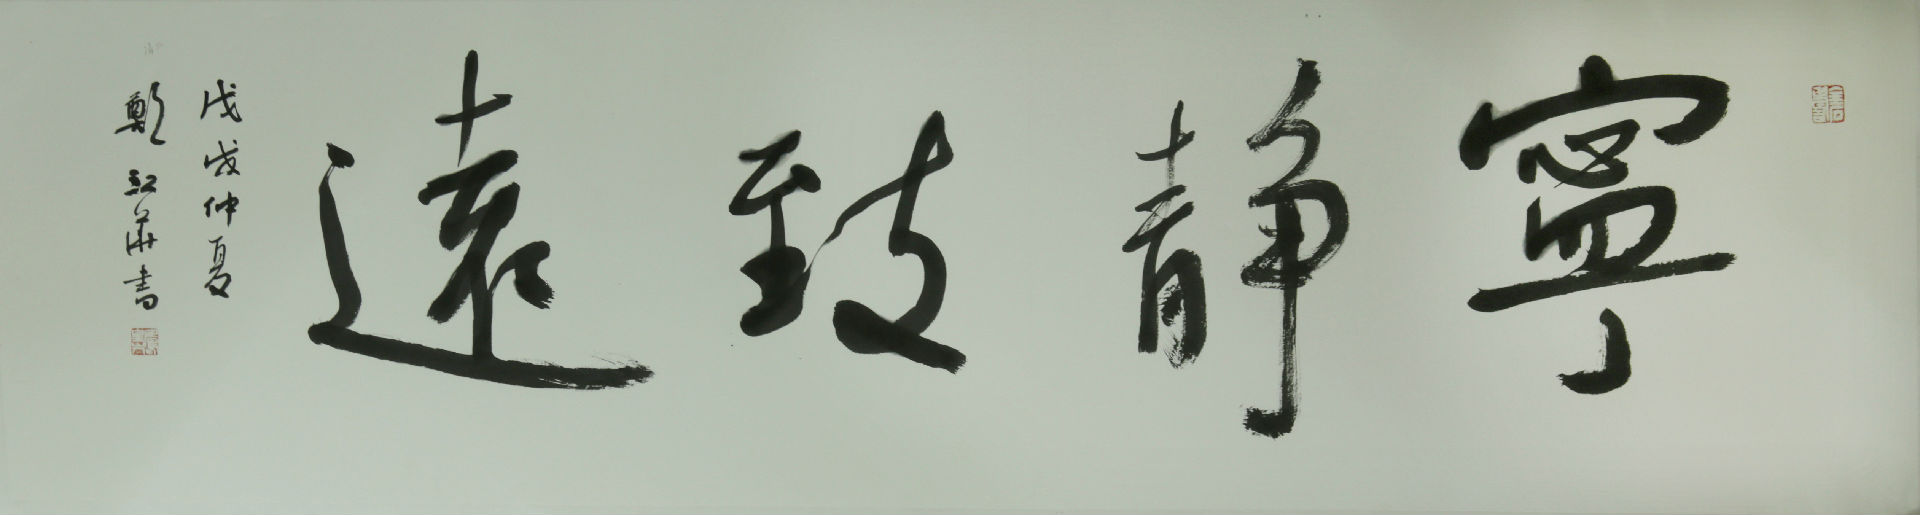 寧靜致遠
戊戌仲夏
鄭江華書